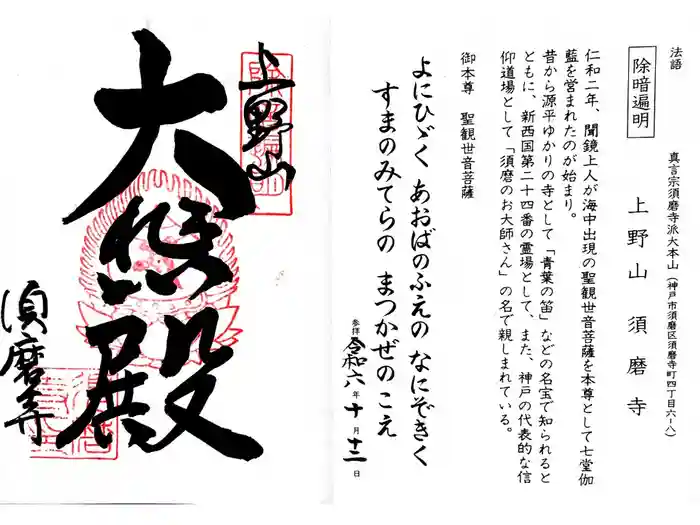 法語
除暗遍明
真言宗須磨寺派大本山(神戸市須磨区須磨寺町四丁目六ー八)
上野山 須磨寺
仁和二年、聞鏡上人が海中出現の聖観世音菩薩を本尊として七堂伽
藍を営まれたのが始まり。
昔から源平ゆかりの寺として「青葉の笛」などの名宝で知られると
ともに、新西国第二十四番の霊場として、また、神戸の代表的な信
仰道場として「須磨のお大師さん」の名で親しまれている。
御本尊 聖観世音菩薩
よにひゞく あおばのふえの なにぞきく
すまのみてらの まつかぜのこえ
参拝 令和六年十月十二日
上野山
大悲殿
須磨寺